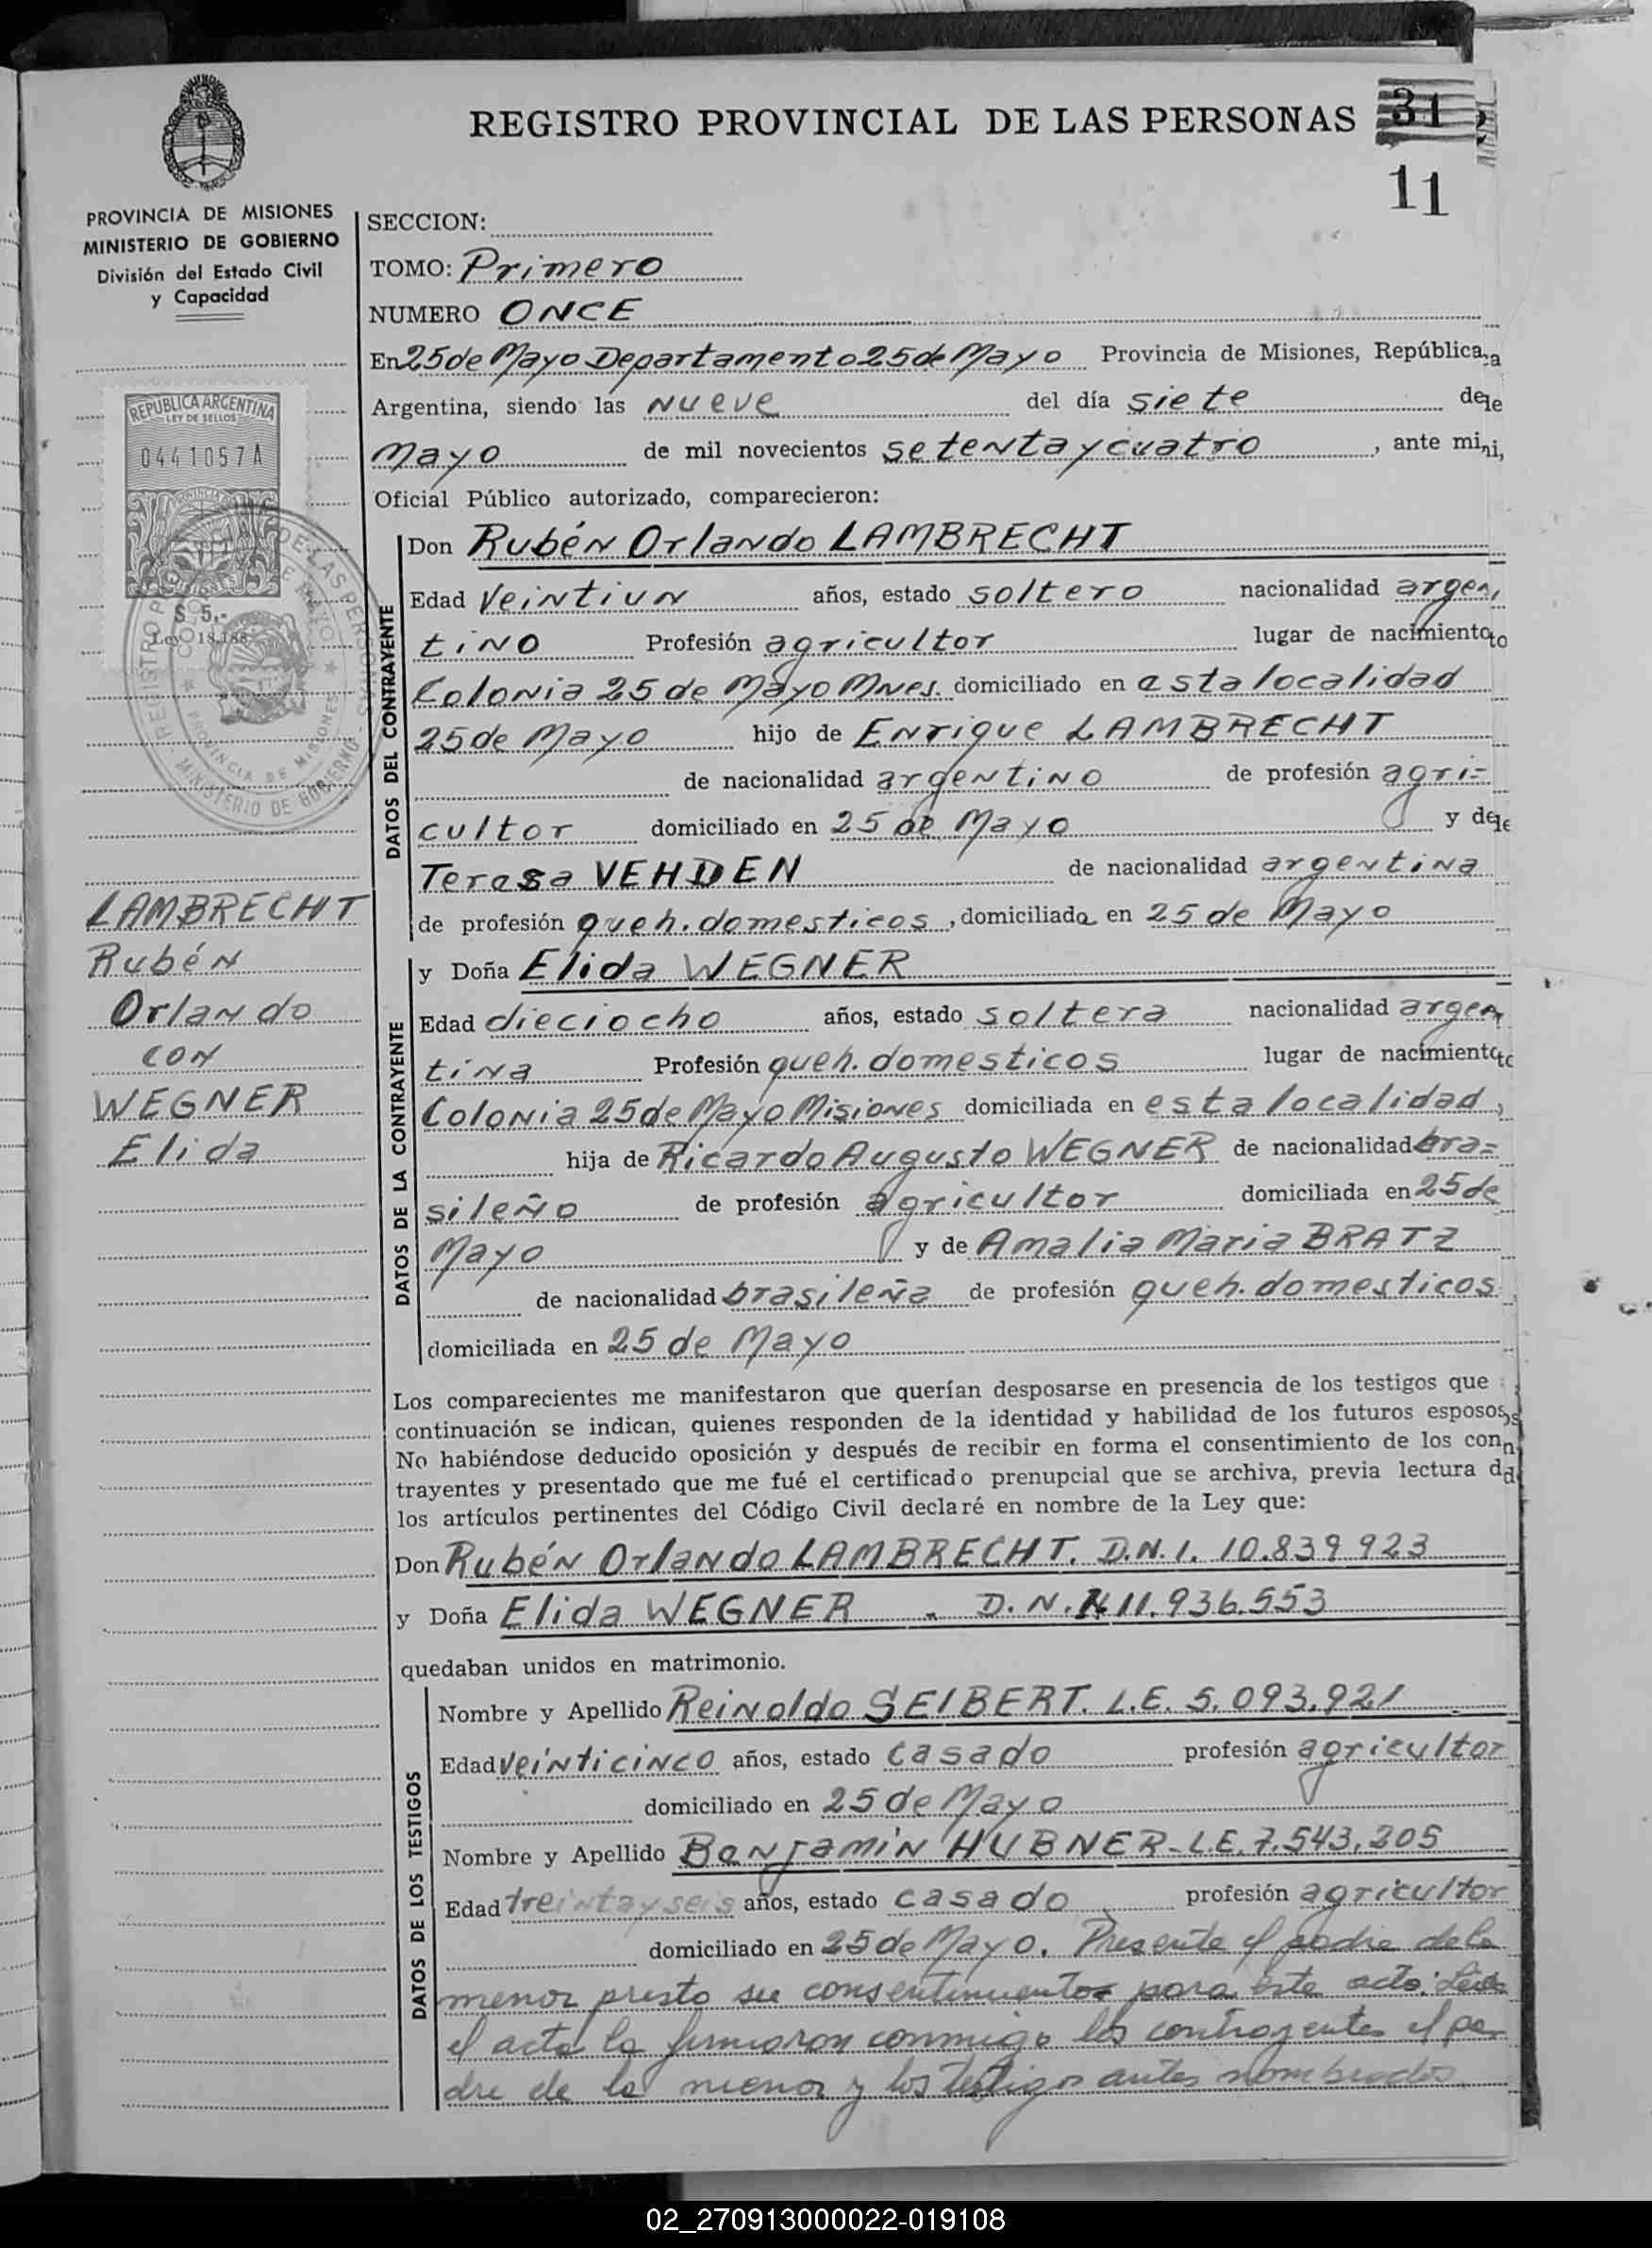 REGISTRO PROVINCIAL DE LAS PERSONAS 31
11
PROVINCIA DE MISIONES
MINISTERIO DE GOBIERNO
División del Estado Civil
y Capacidad
SECCION:
TOMO: Primero
NUMERO ONCE
En 25 de Mayo Departamento 25 de Mayo Provincia de Misiones, República
Argentina, siendo las nueve del día siete de
Mayo de mil novecientos setenta y cuatro, ante mi,
Oficial Público autorizado, comparecieron:
REPUBLICA ARGENTINA
LEY DE SELLOS
0441057A
PROVINCIA DE
MISIONES
$ 5,-
Ley 18.188
REGISTRO P DE LAS PERSONAS - MINISTERIO DE GOBIERNO -
COLO E MAYO * PROVINCIA DE MISIONES *
DATOS DEL CONTRAYENTE
Don Rubén Orlando LAMBRECHT
Edad Veintiun años, estado soltero nacionalidad argen
tino Profesión agricultor lugar de nacimiento
Colonia 25 de Mayo Mnes. domiciliado en esta localidad
25 de Mayo hijo de Enrique LAMBRECHT
de nacionalidad argentino de profesión agri=
cultor domiciliado en 25 de Mayo y de
Teresa VEHDEN de nacionalidad argentina
de profesión queh. domesticos, domiciliada en 25 de Mayo
LAMBRECHT
Rubén
Orlando
con
WEGNER
Elida
DATOS DE LA CONTRAYENTE
y Doña Elida WEGNER
Edad dieciocho años, estado soltera nacionalidad argen
tina Profesión queh. domesticos lugar de nacimiento
Colonia 25 de Mayo Misiones domiciliada en esta localidad,
hija de Ricardo Augusto WEGNER de nacionalidad bra=
sileño de profesión agricultor domiciliada en 25 de
Mayo y de Amalia Maria BRATZ
de nacionalidad brasileña de profesión queh. domesticos
domiciliada en 25 de Mayo
Los comparecientes me manifestaron que querían desposarse en presencia de los testigos que
continuación se indican, quienes responden de la identidad y habilidad de los futuros esposos
No habiéndose deducido oposición y después de recibir en forma el consentimiento de los con
trayentes y presentado que me fué el certificado prenupcial que se archiva, previa lectura d
los artículos pertinentes del Código Civil declaré en nombre de la Ley que:
Don Rubén Orlando LAMBRECHT. D.N.I. 10.839 923
y Doña Elida WEGNER - D.N.I. 11.936.553
quedaban unidos en matrimonio.
DATOS DE LOS TESTIGOS
Nombre y Apellido Reinoldo SEIBERT. L.E. 5.093.921
Edad veinticinco años, estado casado profesión agricultor
domiciliado en 25 de Mayo
Nombre y Apellido Benjamin HUBNER - L.E. 7.543.205
Edad treinta y seis años, estado casado profesión agricultor
domiciliado en 25 de Mayo. Presente el padre de la
menor presto su consentimiento para este acto. Leida
el acta la firmaron conmigo los contrayentes el pa
dre de la menor y los testigos antes nombrados.
02_270913000022-019108